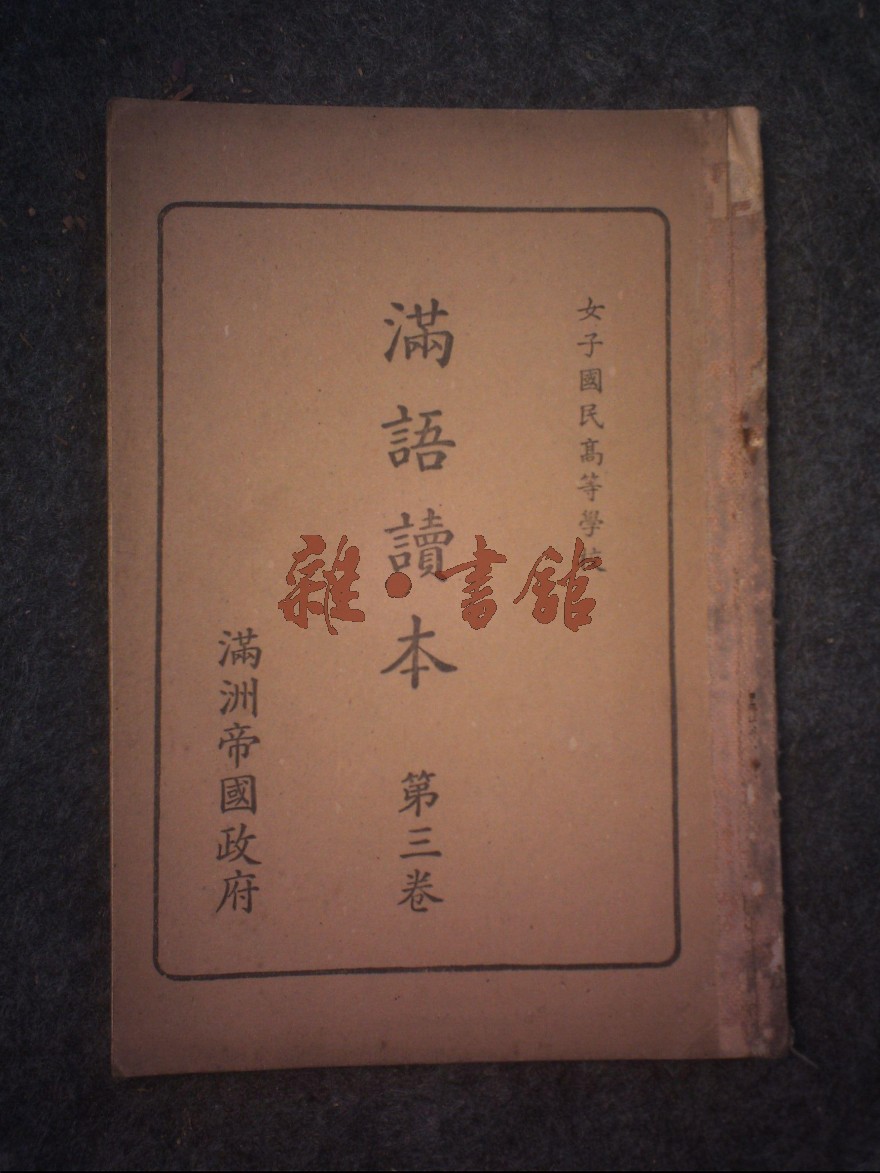 女子國民高等學校
滿語讀本 第三卷
滿洲帝國政府
雜·書館